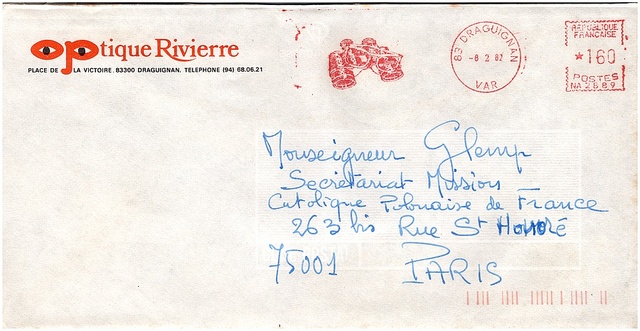 optique Rivierre
PLACE DE LA VICTOIRE. 83300 DRAGUIGNAN. TELEPHONE (94) 68.06.21
83 DRAGUIGNAN
-8 2 82
VAR
REPUBLIQUE
FRANCAISE
*160
POSTES
NA 2889
Monseigneur Glemp
Secrétariat Mission
Catolique Polonaise de France
263 bis Rue St Honoré
75001 PARIS